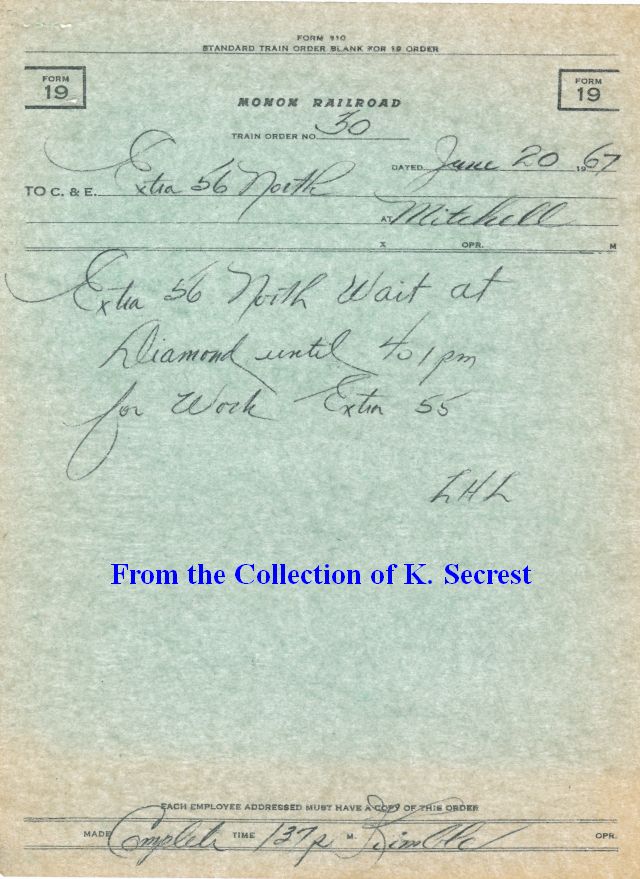 FORM 110
STANDARD TRAIN ORDER BLANK FOR 19 ORDER
FORM 19
FORM 19
MONON RAILROAD
TRAIN ORDER NO. 30
DATED June 20 1967
TO C. & E. Extra 56 North
AT Mitchell
X OPR. M
Extra 56 North Wait at
Diamond until 401pm
for Work Extra 55
LHL
From the Collection of K. Secrest
EACH EMPLOYEE ADDRESSED MUST HAVE A COPY OF THIS ORDER
MADE Complete TIME 137p M. Kimble OPR.